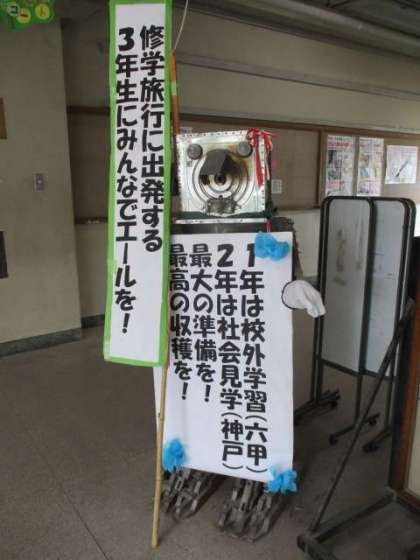 修学旅行に出発する
3年生にみんなでエールを!
1年は校外学習(六甲)
2年は社会見学(神戸)
最大の準備を!
最高の収穫を!